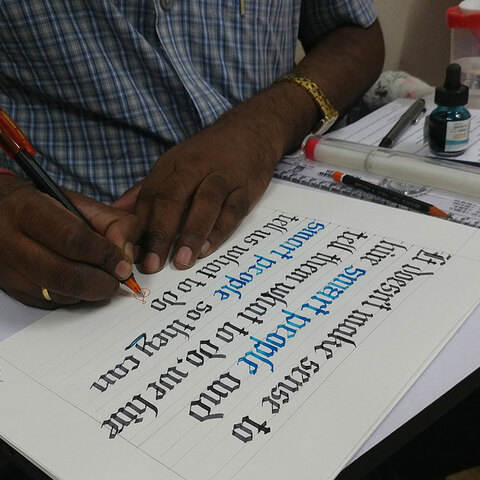 It doesn't make sense to
hire smart people and
tell them what to do. we hire
smart people so they can
tell us what to do